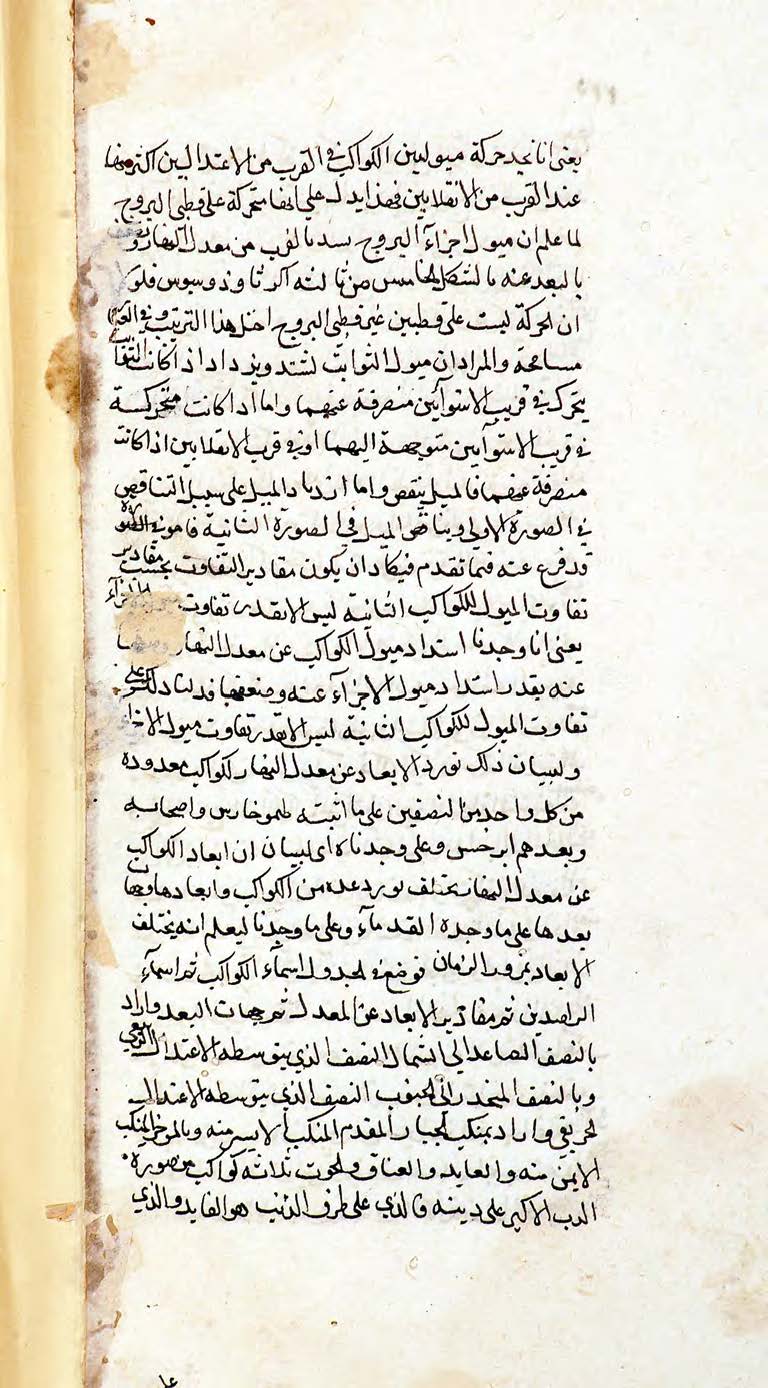 يعنى انا نجد حركة ميول بين الكواكب فى القرب من الاعتدالين اكثر منها
عند القرب من الانقلابين فهذا يدل على انها متحركة على قطبى البروج
لما علم ان ميول اجزآء البروج بالقرب من معدل النهار
بالبعد عنه بالشكل الخامس من ثالثه اكر ثاوذوسيوس فلو
ان الحركة ليست على قطبين غير قطبى البروج اختل هذا الترتيب وفى
مسامحة والمراد ان ميول الثوابت تشتد ويزداد اذا كانت
يتحرك فى قريب الاستوآئين منصرفة عنهما واما اذا كانت متحركة
فى قريب الاستوآيين متوجهة اليهما او فى قرب الانقلابين اذا كانت
منصرفة عنهما فالميل ينقص واما ازدياد الميل على سبيل التناقص
فى الصورة الاولى وتناقص الميل فى الصورة الثانية
قد فرغ عنه فيما تقدم فيكاد ان يكون مقادير التفاوت بحسب مقادير
تفاوت الميول للكواكب الثانية ليس الا بقدر تفاوت
يعنى انا وجدنا ميول الكواكب عن معدل النهار
عنه بقدر ميول الاجزآء عنه وضعفها فدلنا ذلك على
تفاوت الميول للكواكب الثانية ليس الا بقدر تفاوت ميول
ولبيان ذلك نورد الابعاد عن معدل النهار لكواكب معدودة
من كل واحد من النصفين على ما اثبته طموخارس واصحابه
وبعدهم ابرخس وعلى وجدناه اى لبيان ان ابعاد الكواكب
عن معدل النهار تختلف نورد عدة من الكواكب وابعادها وجهات
بعدها على ما وجده القدمآء وعلى ما وجدنا ليعلم انه يختلف
الابعاد بمرور الزمان فوضع فى الجدول اسمآء الكواكب ثم اسمآء
الراصدين ثم مقادير الابعاد عن المعدل ثم جهات البعد واراد
بالنصف الصاعد الى الشمال النصف الذى يتوسطه الاعتدال الربيعى
وبالنصف المنحدر الى الجنوب النصف الذى يتوسطه الاعتدال
الخريفى واراد بمنكب الجبار المقدم المنكب الايسر منه وبالموخر المنكب
الايمن منه والعايد والعناق والحوت ثلاثة كواكب من صورة
الدب الاكبر على ذنبه فالذى على طرف الذنب هو القايد والذى